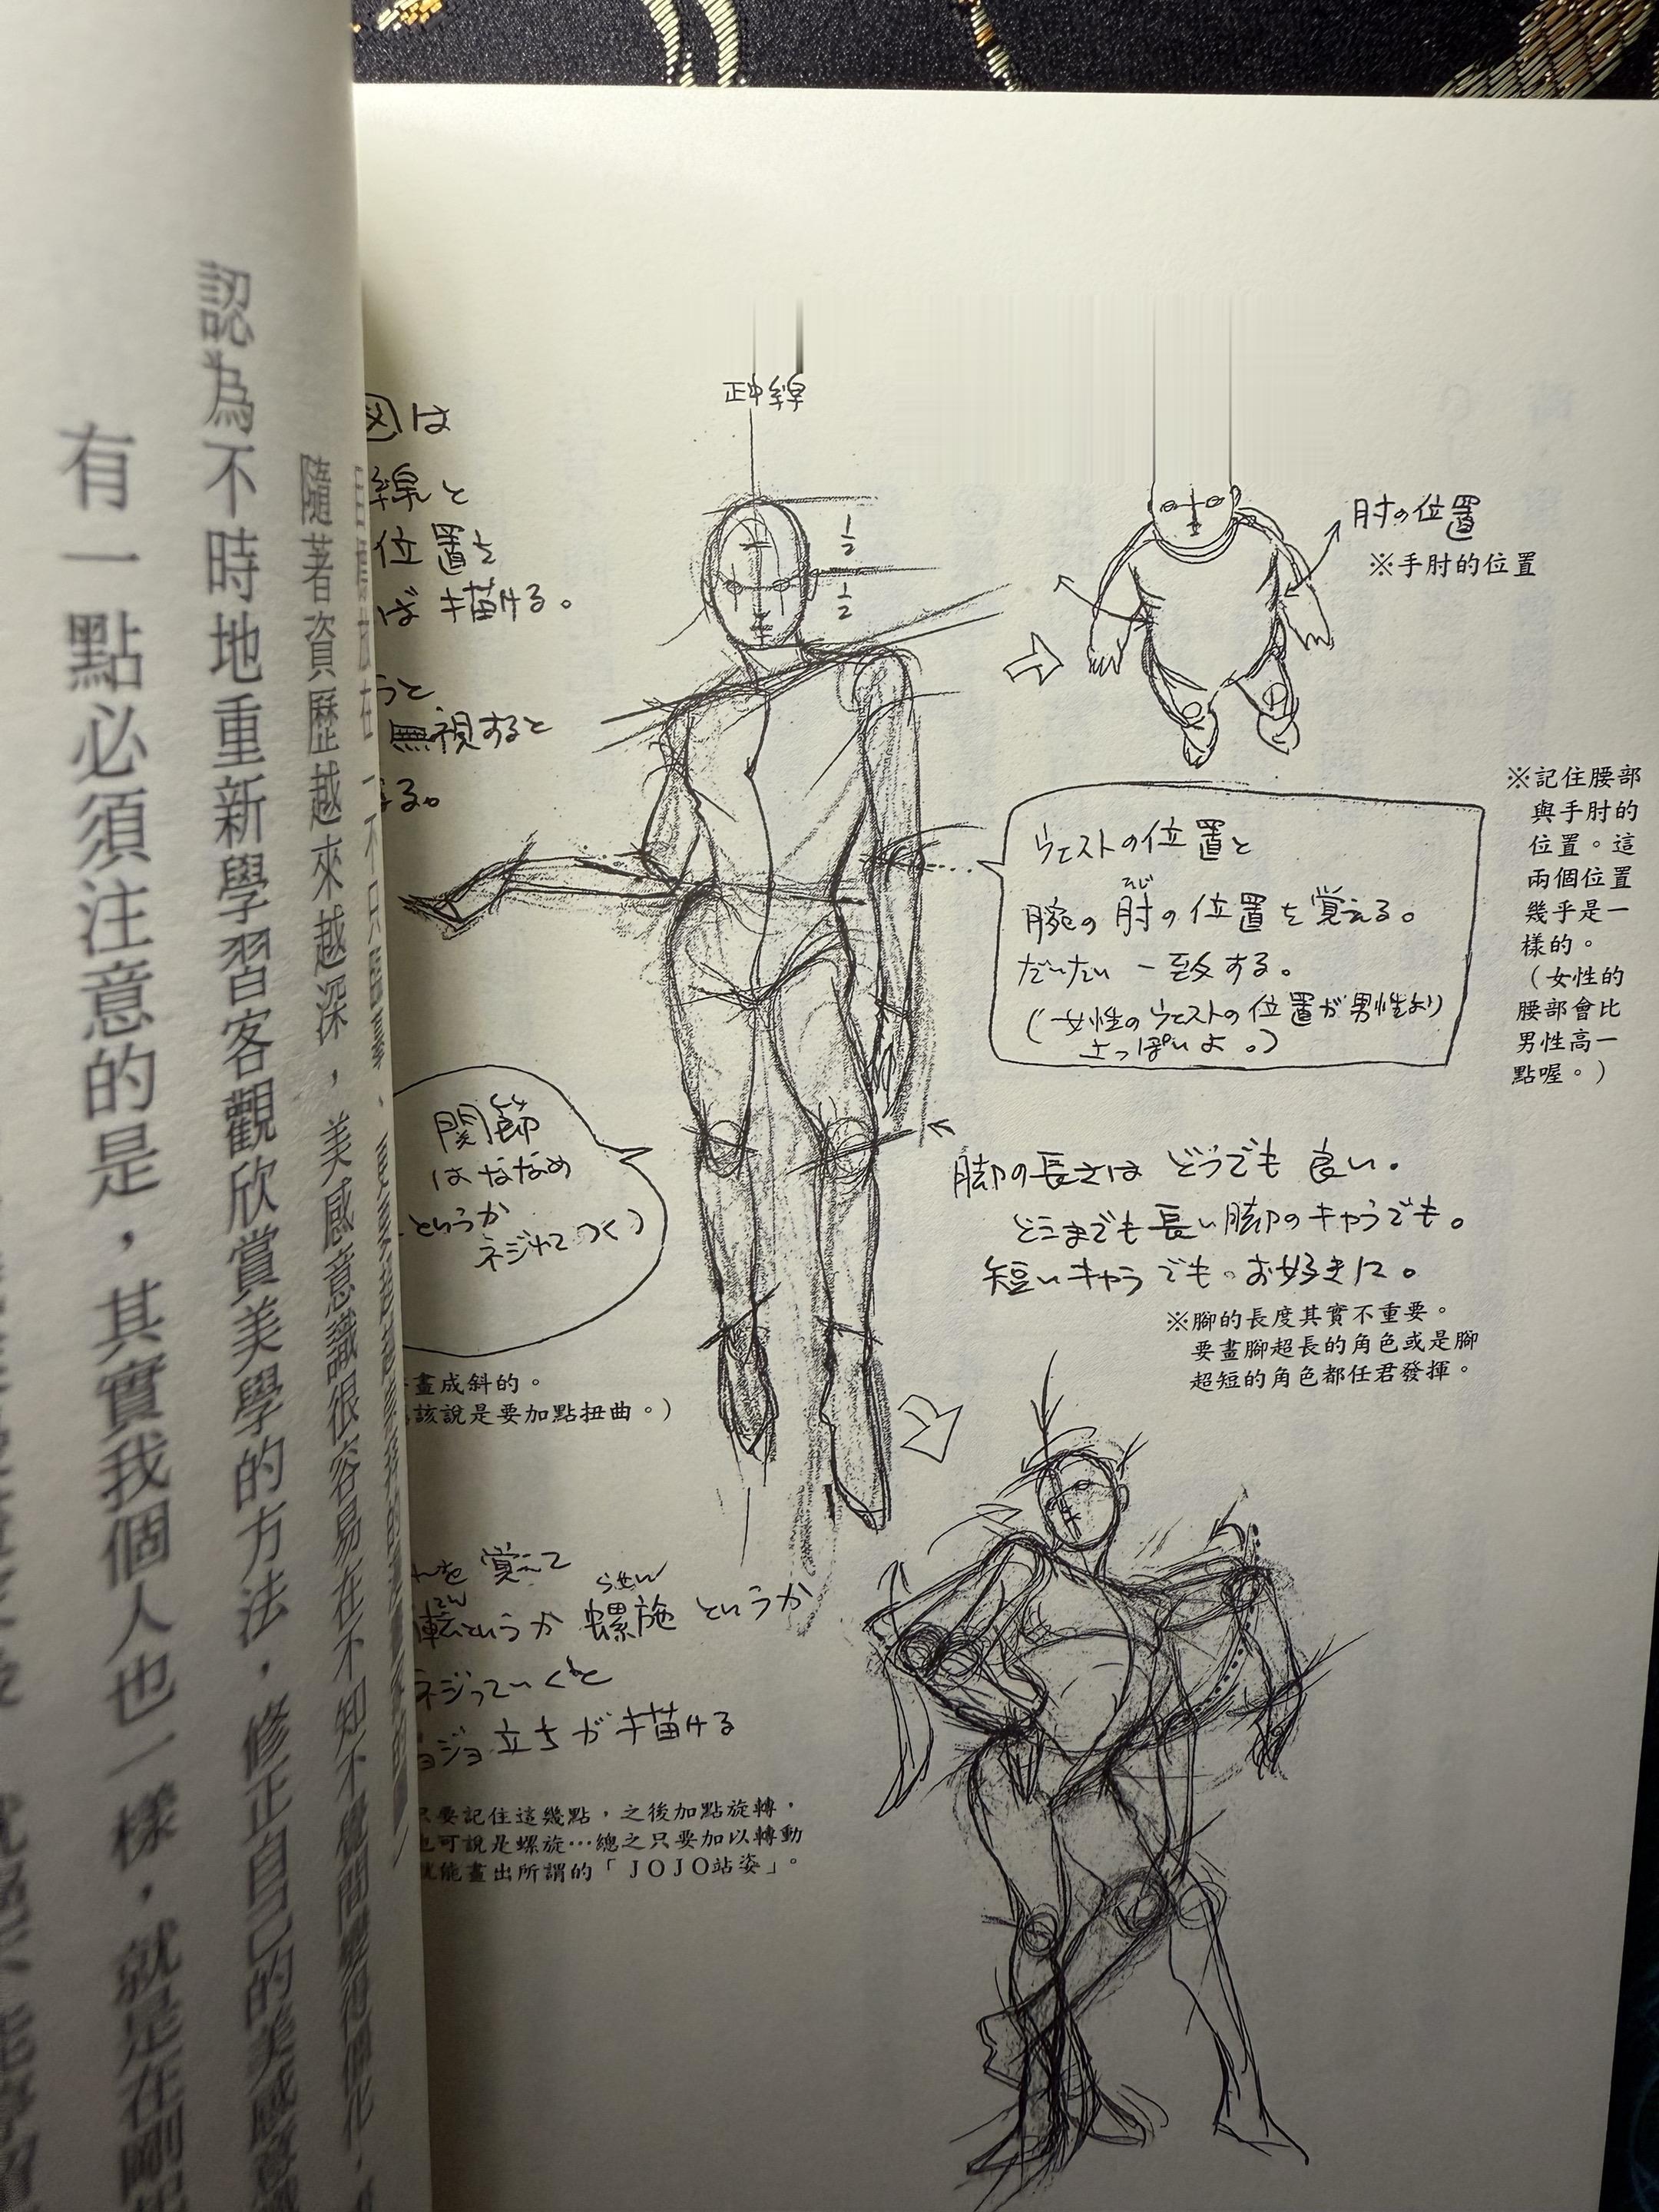 正中線
図は
線と
位置を
ば描ける。
うと
無視すると
る。
肘の位置
※手肘的位置
ウエストの位置と
ひじ
腕の肘の位置を覚える。
だいたい一致する。
(女性のウエストの位置が男性より
上っぽいよ。)
※記住腰部
與手肘的
位置。這
兩個位置
幾乎是一
樣的。
(女性的
腰部會比
男性高一
點喔。)
関節
はななめ
というか
ネジれてつく)
畫成斜的。
該說是要加點扭曲。)
脚の長さはどうでも良い。
どこまでも長い脚のキャラでも。
短いキャラでも。お好きに。
※腳的長度其實不重要。
要畫腳超長的角色或是腳
超短的角色都任君發揮。
を覚えて
らせん
転というか螺施というか
ネジっていくと
ョジョ立ちが描ける
只要記住這幾點,之後加點旋轉,
也可說是螺旋…總之只要加以轉動
就能畫出所謂的「JOJO站姿」。
隨著資歷越來越深,美感意識很容易在不知不覺間變得僵化,
認為不時地重新學習客觀欣賞美學的方法,修正自己的美感意識
有一點必須注意的是,其實我個人也一樣,就是在剛